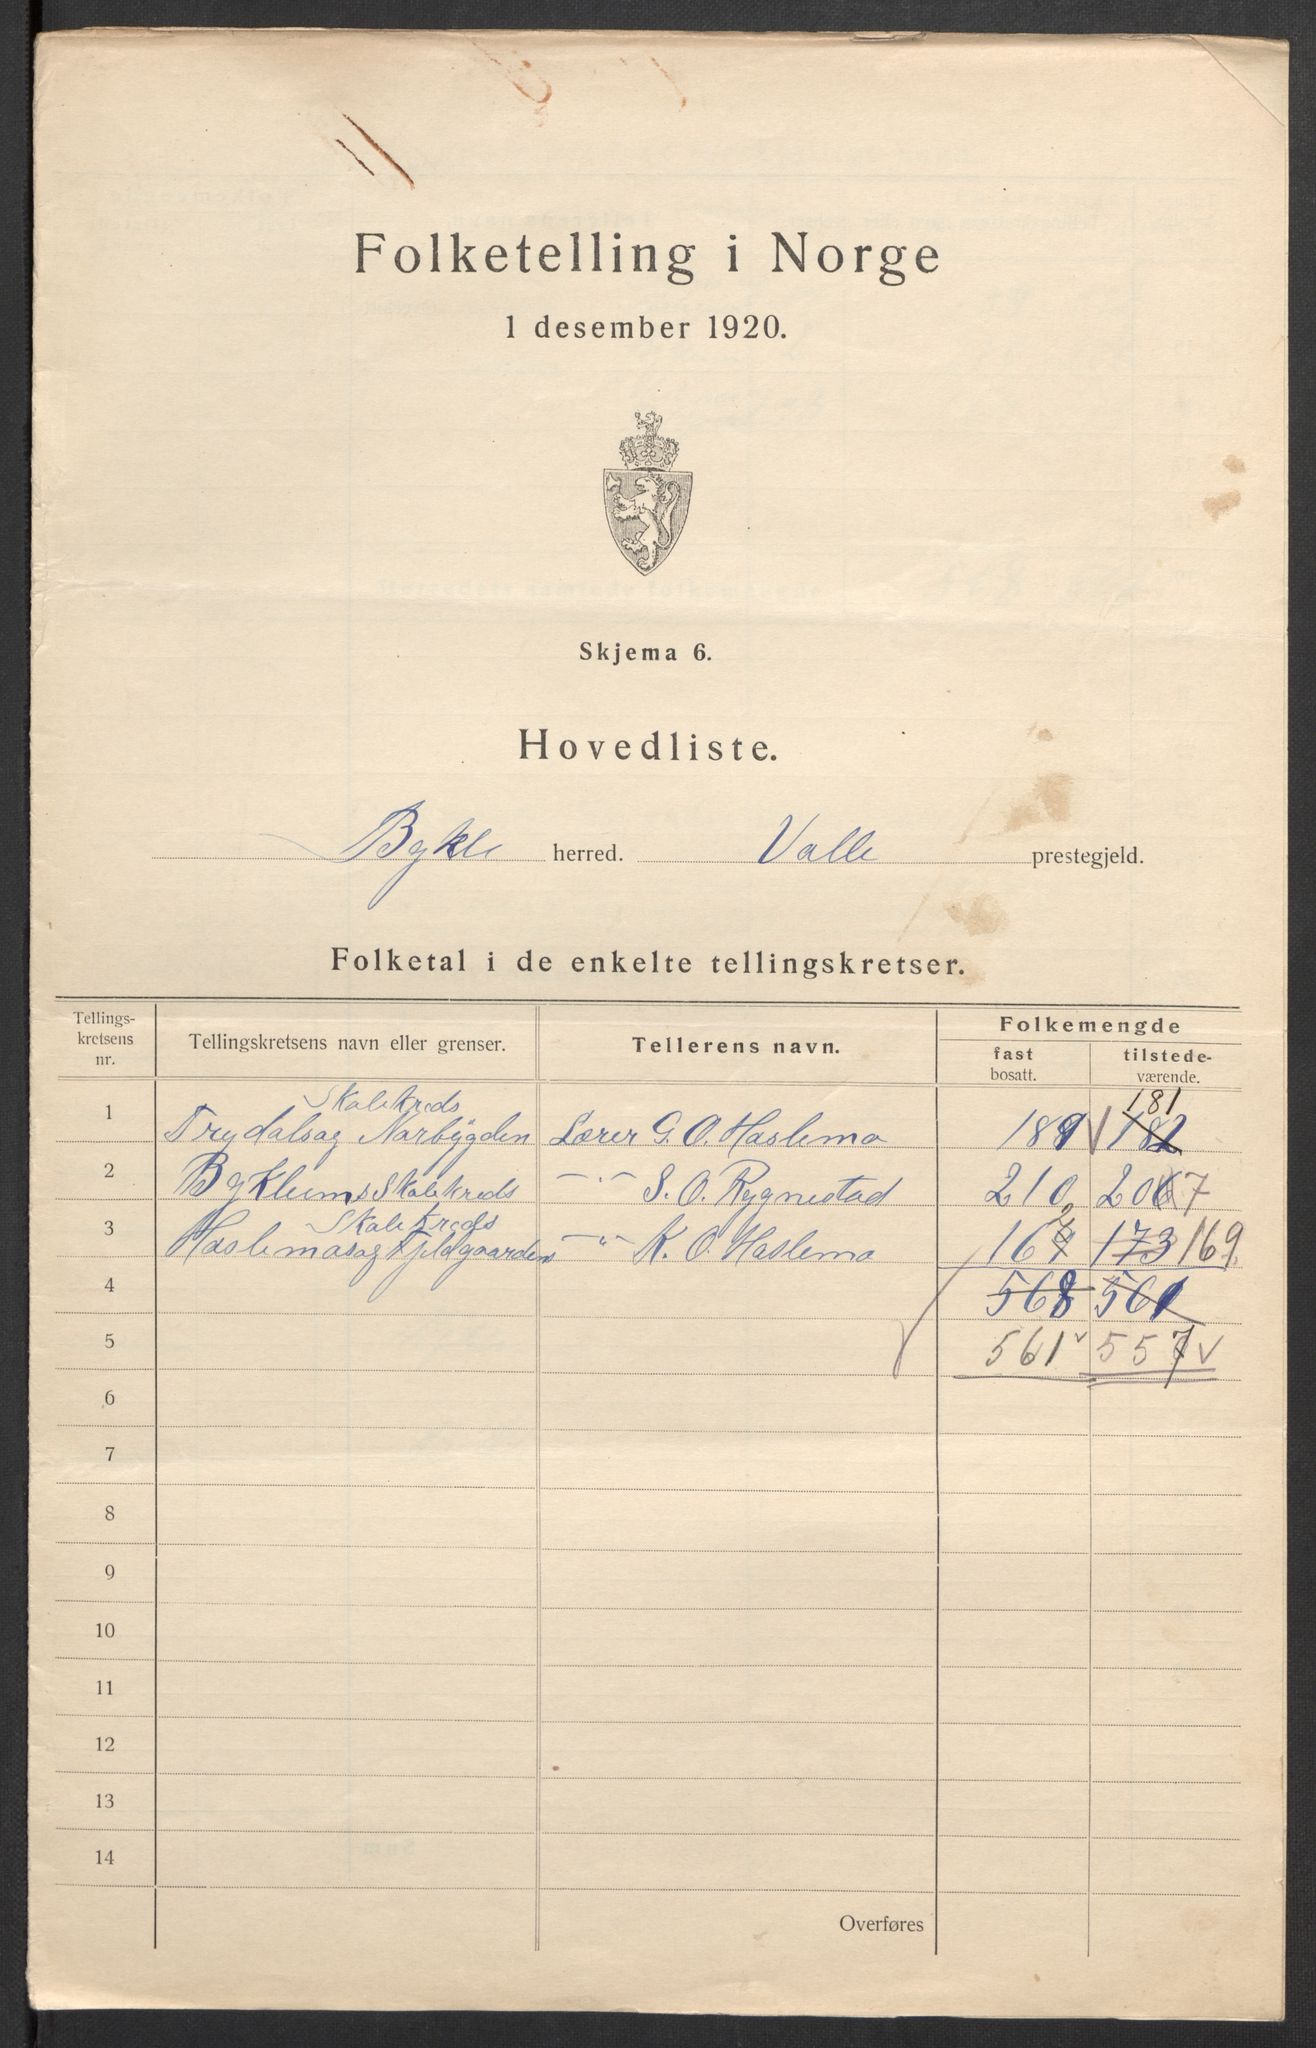 Folketelling i Norge
1 desember 1920.
Skjema 6.
Hovedliste.
Bykle herred. Valle prestegjeld.
Folketal i de enkelte tellingskretser.
Tellings-
kretsens
nr.
Tellingskretsens navn eller grenser.
Tellerens navn.
Folkemengde
fast
bosatt.
tilstede-
værende.
Skolekreds 181
1 Trydalsog Norbygden Lærer G. O. Haslemo 189 182
2 Byklums Skolekreds -"- S. O. Rygnestad 210 2067
Skolekreds
3 Haslemosog Fjeldgaardens -"- K. O. Haslemo 173 169
4 568 561
5 561 557
6
7
8
9
10
11
12
13
14
Overføres